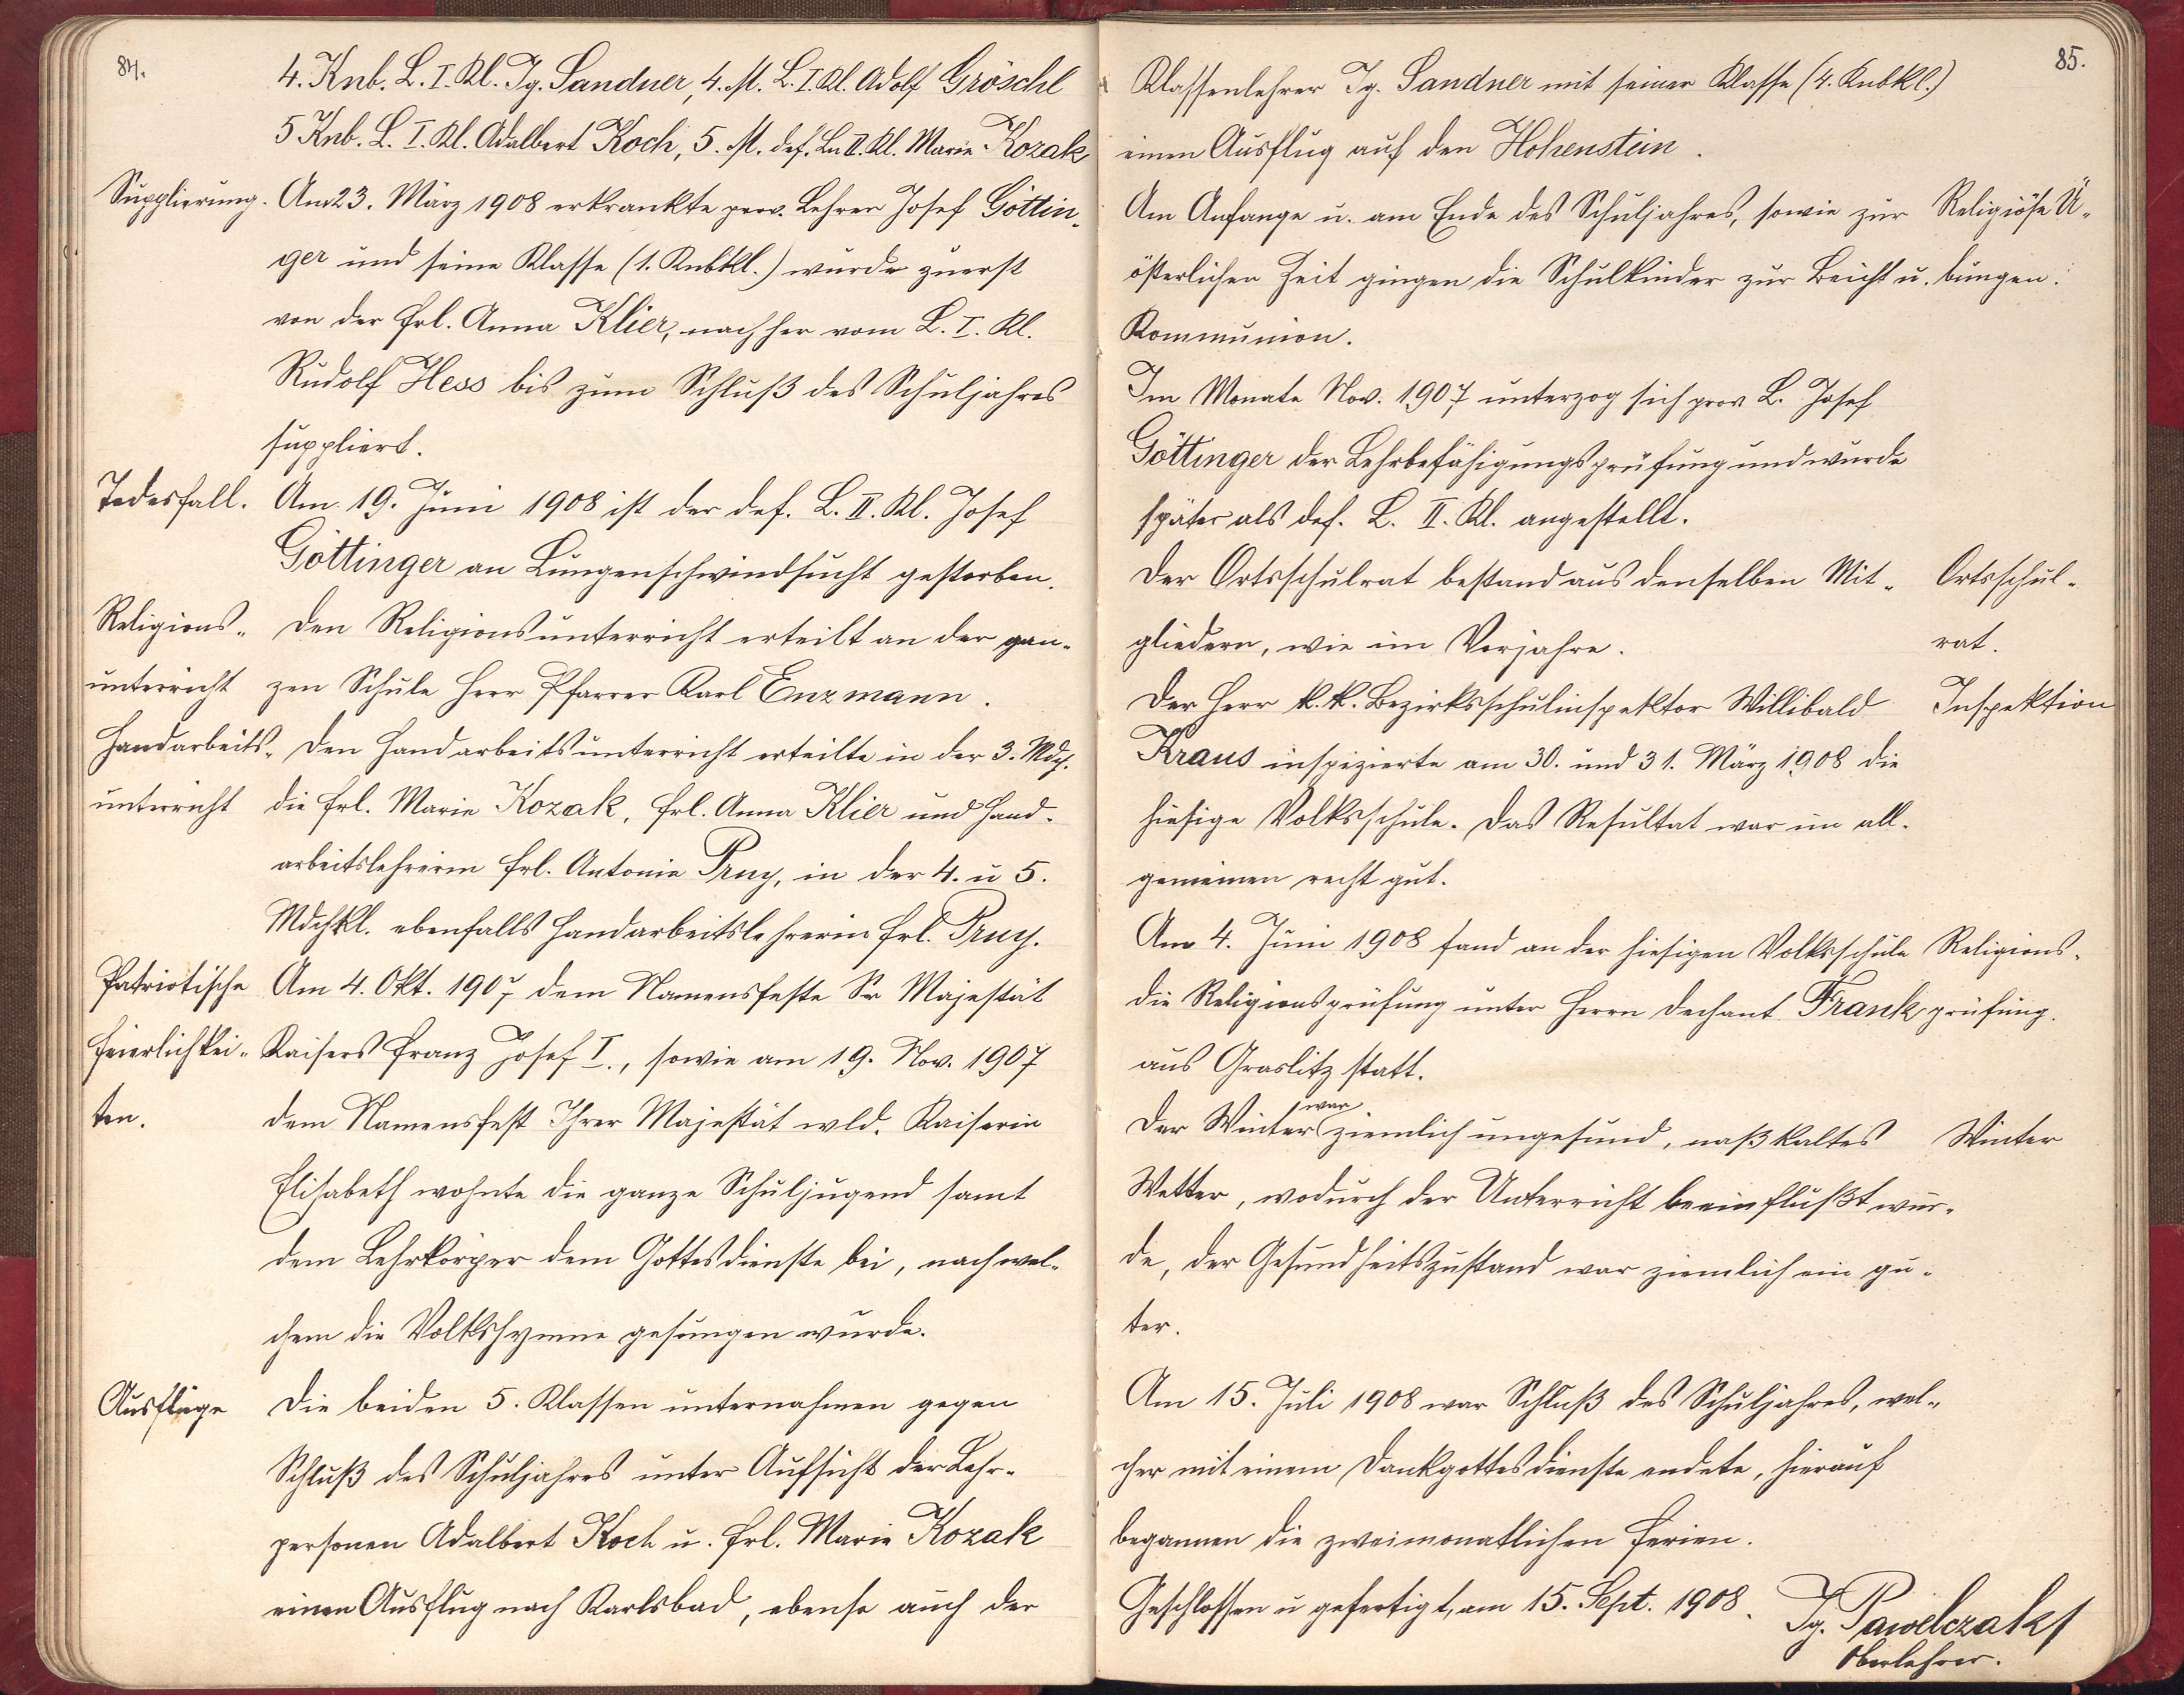 84.
4. Knb. L. I. Kl. Ig. Sandner, 4. M. L. I. Kl. Adolf Gröschl
5 Knb. L. I. Kl. Adalbert Koch, 5. M. def. Ln II. Kl. Marie Kozak
Supplierung. Am 23. März 1908 erkrankte prov. Lehrer Josef Göttin-
ger und seine Klasse (1. Knbkl.) wurde zuerst
von der Frl. Anna Klier, nachher vom L. I. Kl.
Rudolf Hess bis zum Schluß des Schuljahres
suppliert.
Todesfall. Am 19. Juni 1908 ist der def. L. II. Kl. Josef
Göttinger an Lungenschwindsucht gestorben.
Religions- Den Religionsunterricht erteilt an der gan-
unterricht zen Schule Herr Pfarrer Karl Enzmann.
Handarbeits- Den Handarbeitsunterricht erteilte in der 3. Mdch.
unterricht die Frl. Marie Kozak, Frl. Anna Klier und Hand-
arbeitslehrerin Frl. Antonie Pruy, in der 4. u 5.
Mdchkl. ebenfalls Handarbeitslehrerin Frl. Pruy.
Patriotische Am 4. Okt. 1907 dem Namensfeste Sr Majestät
Feierlichkei- Kaisers Franz Josef I., sowie am 19. Nov. 1907
ten. dem Namensfest Ihrer Majestät wld. Kaiserin
Elisabeth wohnte die ganze Schuljugend samt
dem Lehrkörper dem Gottesdienste bei, nach wel-
chem die Volkshymne gesungen wurde.
Ausflüge Die beiden 5. Klassen unternahmen gegen
Schluß des Schuljahres unter Aufsicht der Lehr-
personen Adalbert Koch u. Frl. Marie Kozak
einen Ausflug nach Karlsbad, ebenso auch der
85.
Klassenlehrer Ig. Sandner mit seiner Klasse (4. Knbkl.)
einen Ausflug auf den Hohenstein.
Am Anfange u. am Ende des Schuljahres, sowie zur Religiöse Ü-
österlichen Zeit gingen die Schulkinder zur Beicht u. bungen.
Kommunion.
Im Monate Nov. 1907 unterzog sich prov. L. Josef
Göttinger der Lehrbefähigungsprüfung und wurde
später als def. L. II. Kl. angestellt.
Der Ortsschulrat bestand aus denselben Mit- Ortsschul-
gliedern, wie im Vorjahre. rat.
Der Herr k. k. Bezirksschulinspektor Willibald Inspektion
Kraus inspizierte am 30. und 31. März 1908 die
hiesige Volksschule. Das Resultat war im all-
gemeinen recht gut.
Am 4. Juni 1908 fand an der hiesigen Volksschule Religions-
die Religionsprüfung unter Herrn Dechant Frank prüfung.
aus Graslitz statt.
Der Winter war ziemlich ungesund, naßkaltes Winter
Wetter, wodurch der Unterricht beeinflußt wur-
de, der Gesundheitszustand war ziemlich ein gu-
ter.
Am 15. Juli 1908 war Schluß des Schuljahres, wel-
cher mit einem Dankgottesdienste endete, hierauf
begannen die zweimonatlichen Ferien.
Geschlossen u gefertigt, am 15. Sept. 1908. Ig. Pawelczak
Oberlehrer.